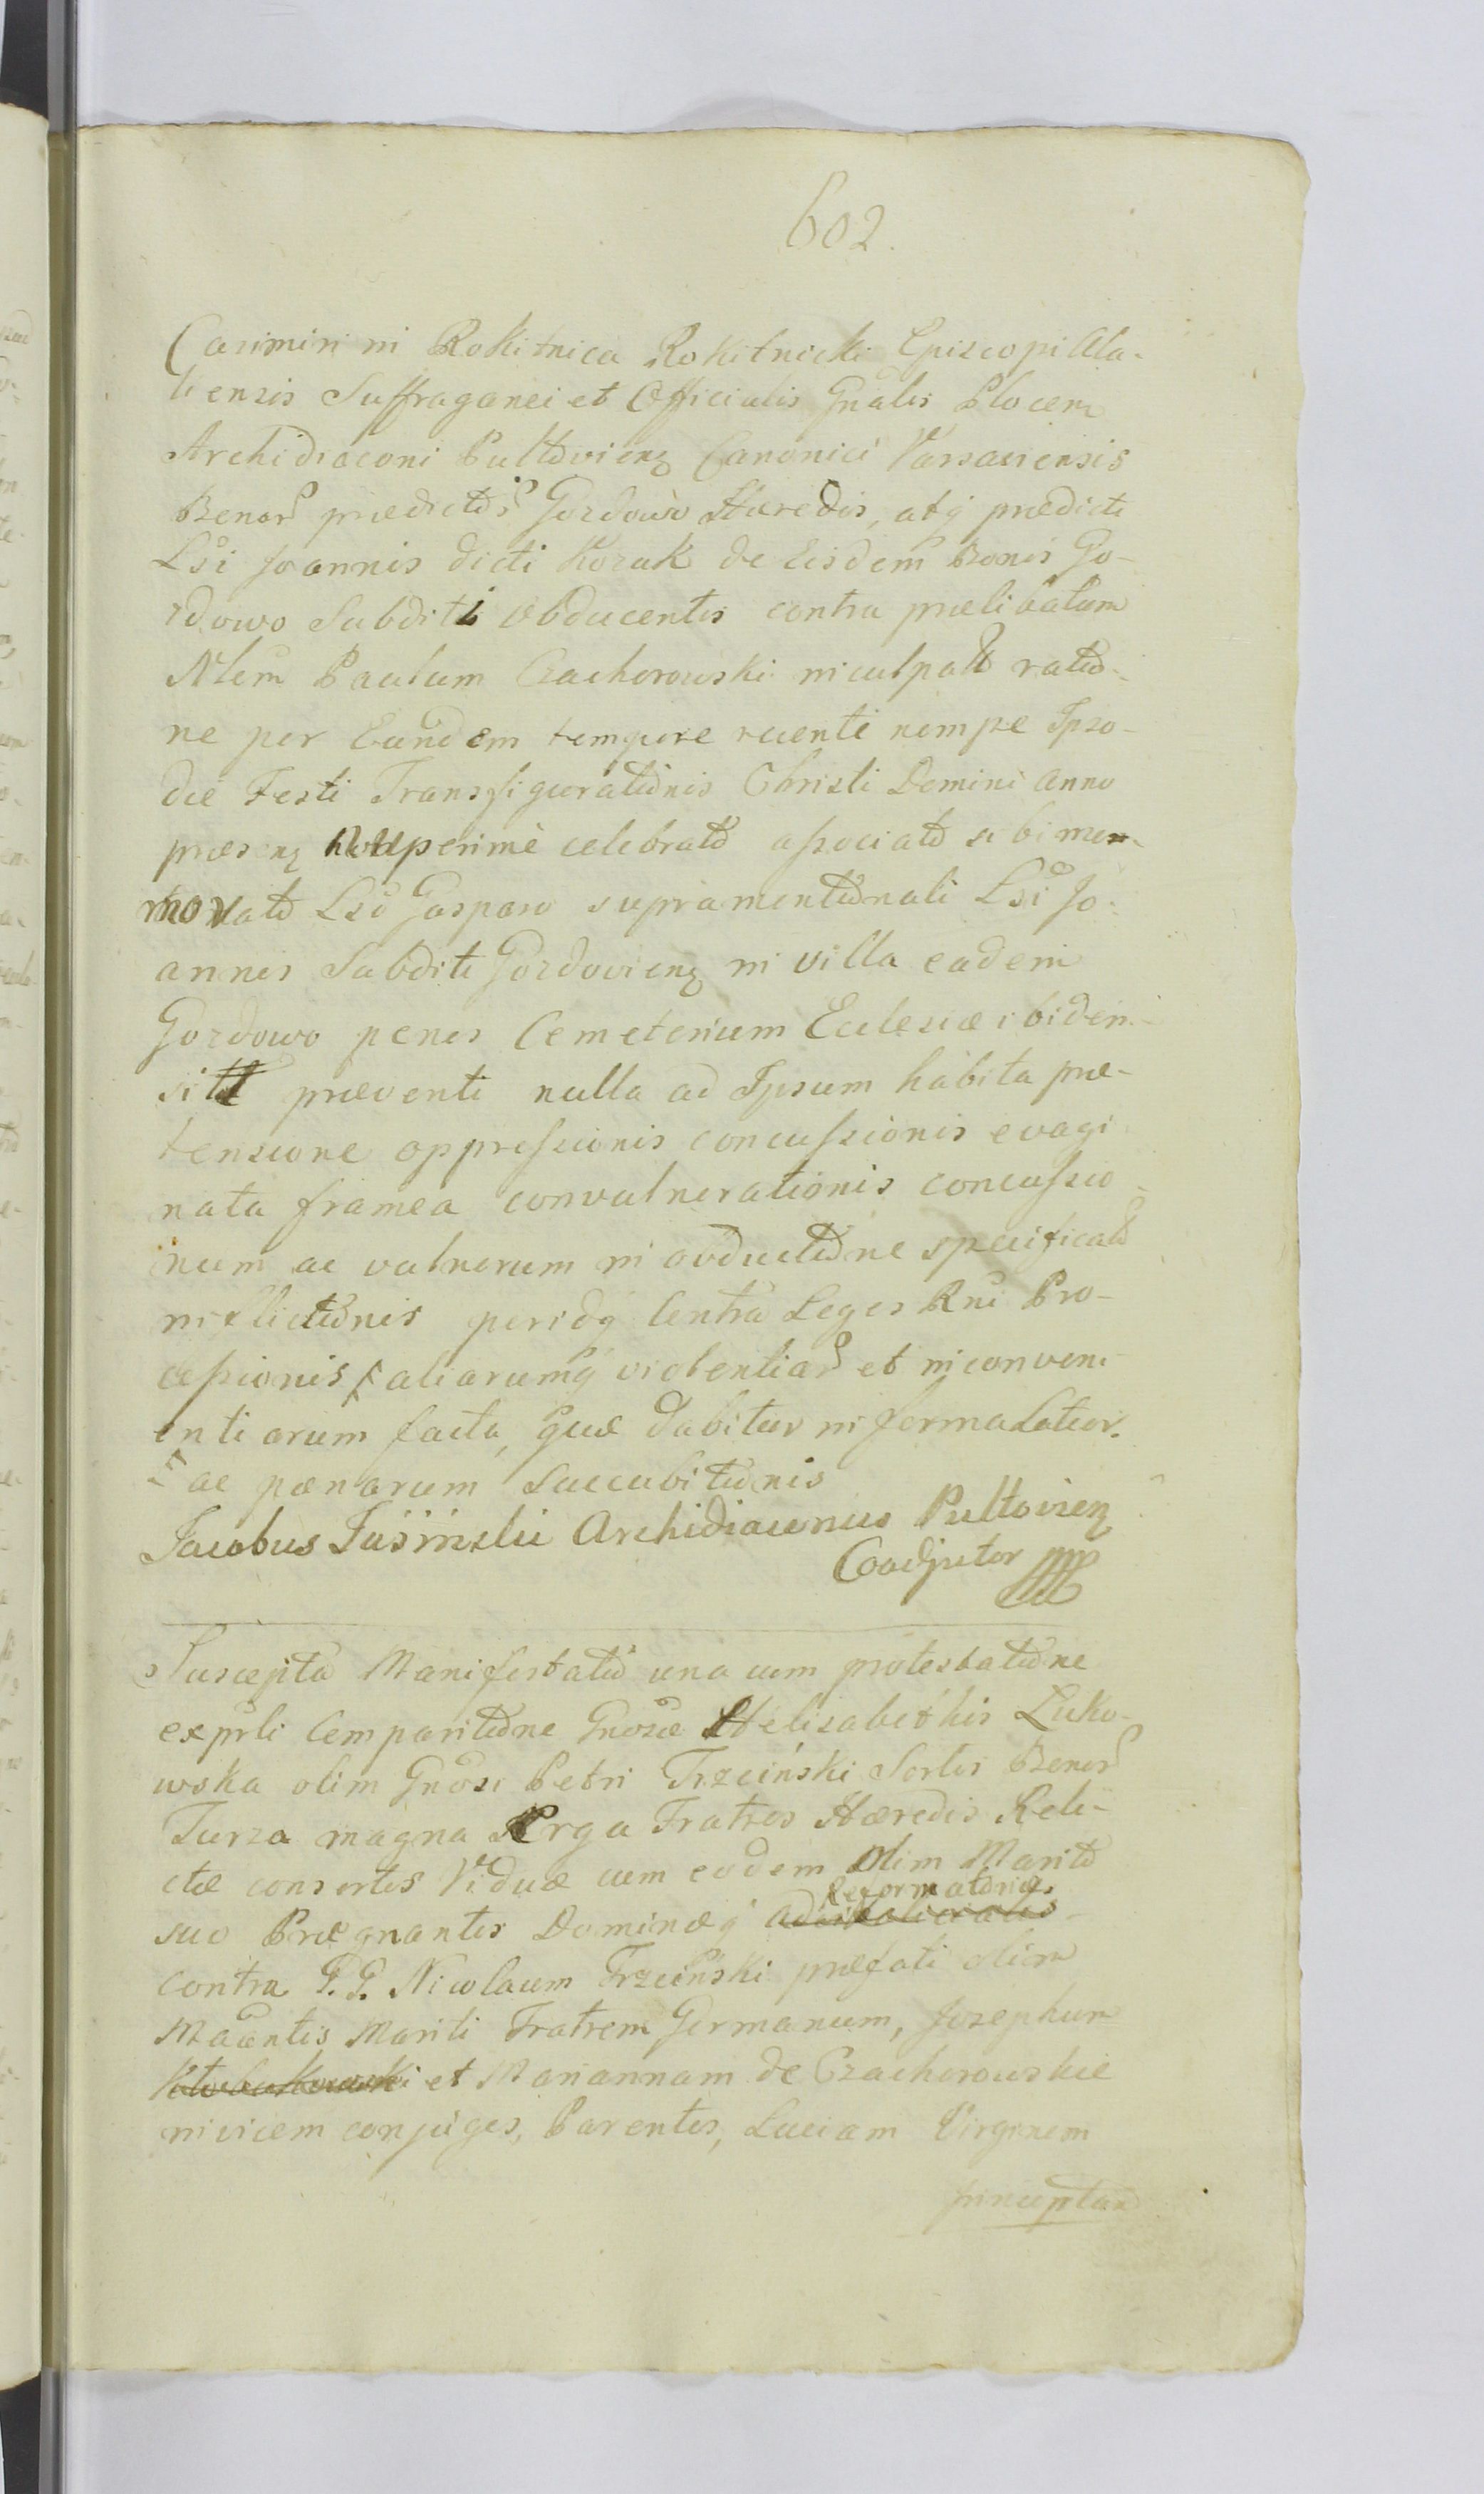 602.
Casimiri in Rokitnica Rokitnicki Episcopi Ala-
liensis Suffraganei et Officialis Gnalis Plocen
Archidiaconi Pultovienz Canonici Varsaviensis
Bonor prædictor Gozdowo Hæredis, atq prædicti
Lsi Joannis dicti Kozak de eisdem Bonis Go-
zdowo Subditi obducentis contra prælibatum
Nlem Paulum Czachorowski inculpatt ratio-
ne per Eundem tempore recenti nempe Ipso-
die Festi Transfigurationis Christi Domini anno
præsenz nuperime celebrato associato sibi mem-
morato Lso Gasparo supramentionati Lsi Jo-
annis Subditi Gozdovienz in villa eadem
Gozdowo penes Cemeterium Ecclesiæ ibidem
sitt præventi nulla ad Ipsum habita præ-
tensione oppressionis concussionis evagi
nata framea convulnerationis concussio-
num ac vulnerum in obductione specificato
inflictionis peridq Contra Leges Rni Pro-
cessionis aliarumq violentiar et inconveni-
entiarum facta, quæ dabitur in forma Latior.
ac pænarum Succubitionis
Jacobus Jasinski Archidiaconus Pultovienz
Coadjutor
Suscepta Manifestatio una cum protestatione
exprli Comparitione Gnosæ Helisabethis Luko-
wska olim Gnosi Petri Trzcinski Sortis Bonor
Turza magna Erga Fratres Hæredis Reli-
ctæ consortis Viduæ cum eodem olim Marito
Reformatoriæ
suo Prægnantis Dominæq
contra G.G. Nicolaum Trzcinski præfati olim
Maantis Mariti Fratrem Germanum, Josephum
et Mariannam de Czachorowskie
invicem conjuges, Parentes, Luciam Virginem